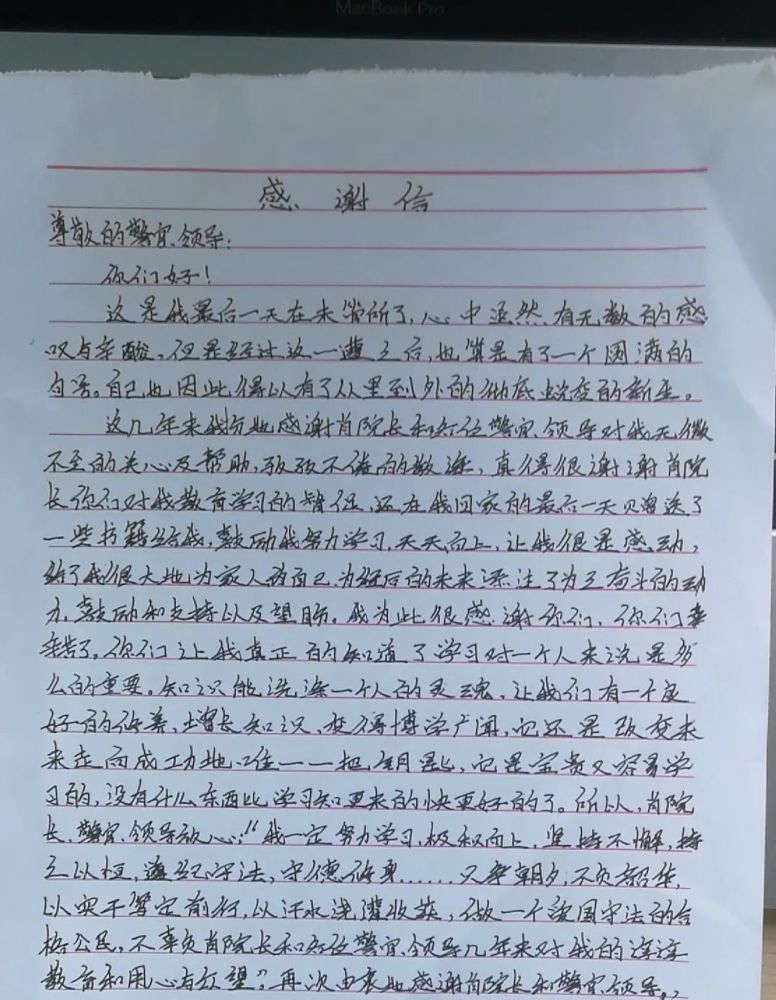 MacBook Pro
感谢信
尊敬的警官、领导：
你们好！
这是我最后一天在未管所了，心中泯然，有无数的感
叹与辛酸，但是经过这一遭之后，也算是有了一个圆满的
句号。自己也因此得以有了从里到外的彻底蜕变的新生。
这几年来我行地感谢肖院长和各位警官、领导对我无微
不至的关心及帮助，孜孜不倦的教诲，真得很谢谢肖院
长你们对我教育学习的督促，还在我回家的最后一天见赠送了
一些书籍给我，鼓励我努力学习，天天向上，让我很是感动，
给了我很大地为家人为自己为经后的未来添注了为之奋斗的动
力，鼓励和支持以及望盼。我为此很感谢你们，你们辛
苦了。你们让我真正的知道了学习对一个人来说是多
么的重要。知识能洗涤一个人的灵魂，让我们有一个良
好的修养、增长知识、变得博学广闻，它还是改变未
来走向成功地唯一一把钥匙，它是宝贵又容易学
习的，没有什么东西比学习知更来的快更好的了。所以，肖院
长、警官、领导放心，"我一定努力学习，极积向上，坚持不懈，持
之以恒，遵纪守法，守德修身……只争朝夕，不负韶华，
以实干笃定前行，以汗水浇灌收获，做一个爱国守法的合
格公民，不辜负肖院长和各位警官、领导几年来对我的谆谆
教育和用心与众望"。再次由衷地感谢肖院长和警官、领导。